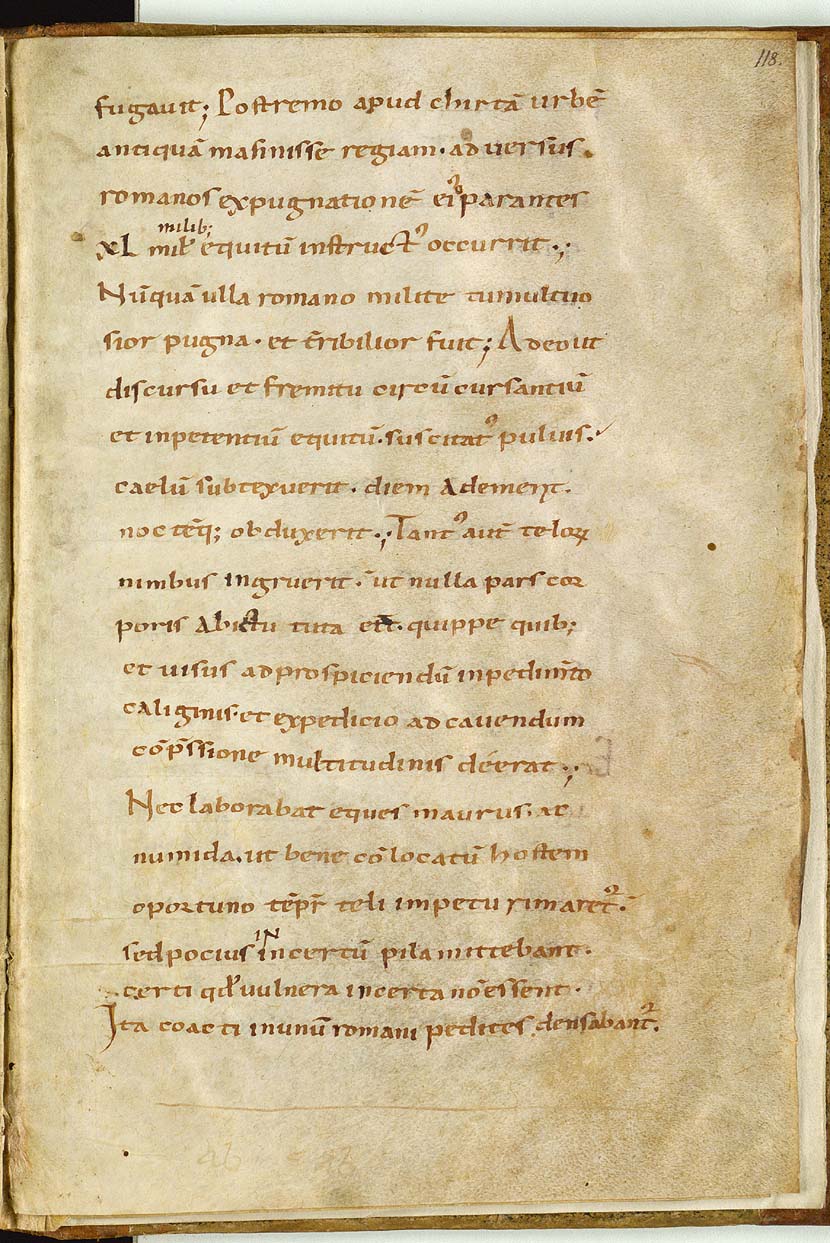 118.
fugavit; Postremo apud chirtā urbē
antiquā masinisse regiam · adversus
romanos expugnationē eiꝰ parantes
milib;
XL mił equitū instructꝰ occurrit.,·
Nūquā ulla romano milite tumultuo
sior pugna · et t̄ribilior fuit; Adeo ut
discursu et fremitu circū cursantiū
et inpetentiū equitū · suscitatꝰ pulvis·
caelū subtexuerit · diem Ademerit.
noctēq; obduxerit.,· Tantꝰ aut̄ teloꝝ
nimbus ingruerit · ut nulla pars cor
poris Abictu tuta eēt · quippe quib;
et visus ad prospiciendū inpedim̄to
caliginis · et expedicio ad cavendum
cōp̄ssione multitudinis deerat.,·
Nec laborabat eques maurus · ac
numida · ut bene cōlocatū hostem
oportuno tēpr̄ teli impetu rimaret᷒.
IN
sed pocius incertū pila mittebant ·
certi qđ vulnera incerta nō essent ·
Ita coacti in unū romani pedites densabant᷒.